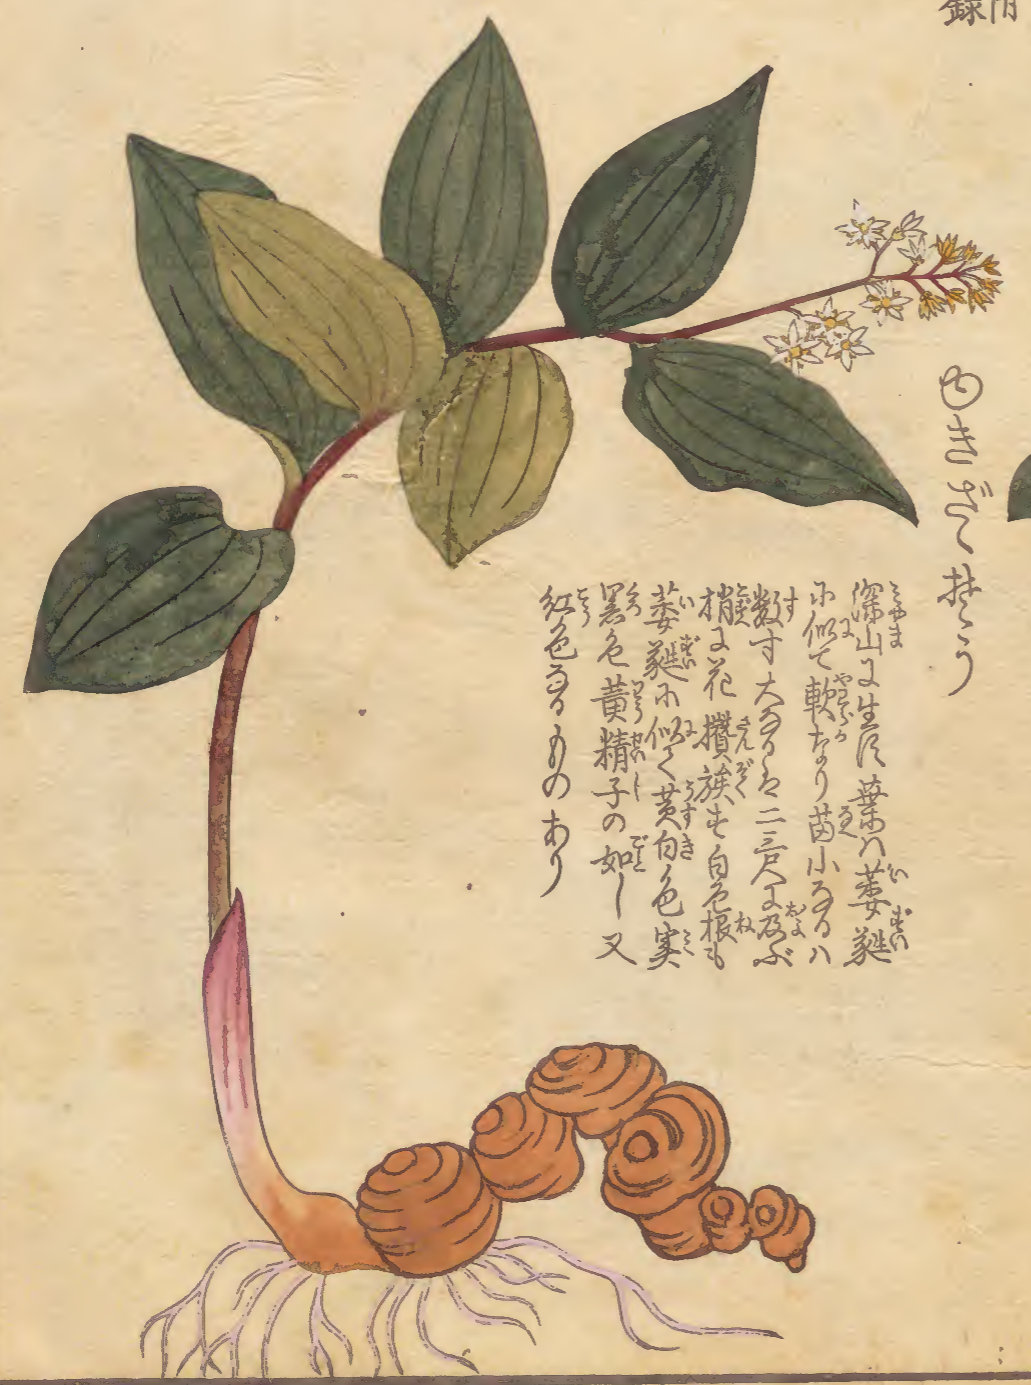 附録
ゆきざゝ
深山に生ず葉ハ萎蕤
に似て軟なり苗小なるハ
数寸大なるは二三尺に及ぶ
梢に花攅簇す白色根も
萎蕤に似て黄白色実
黒色黄精子の如し又
紅色なるものあり